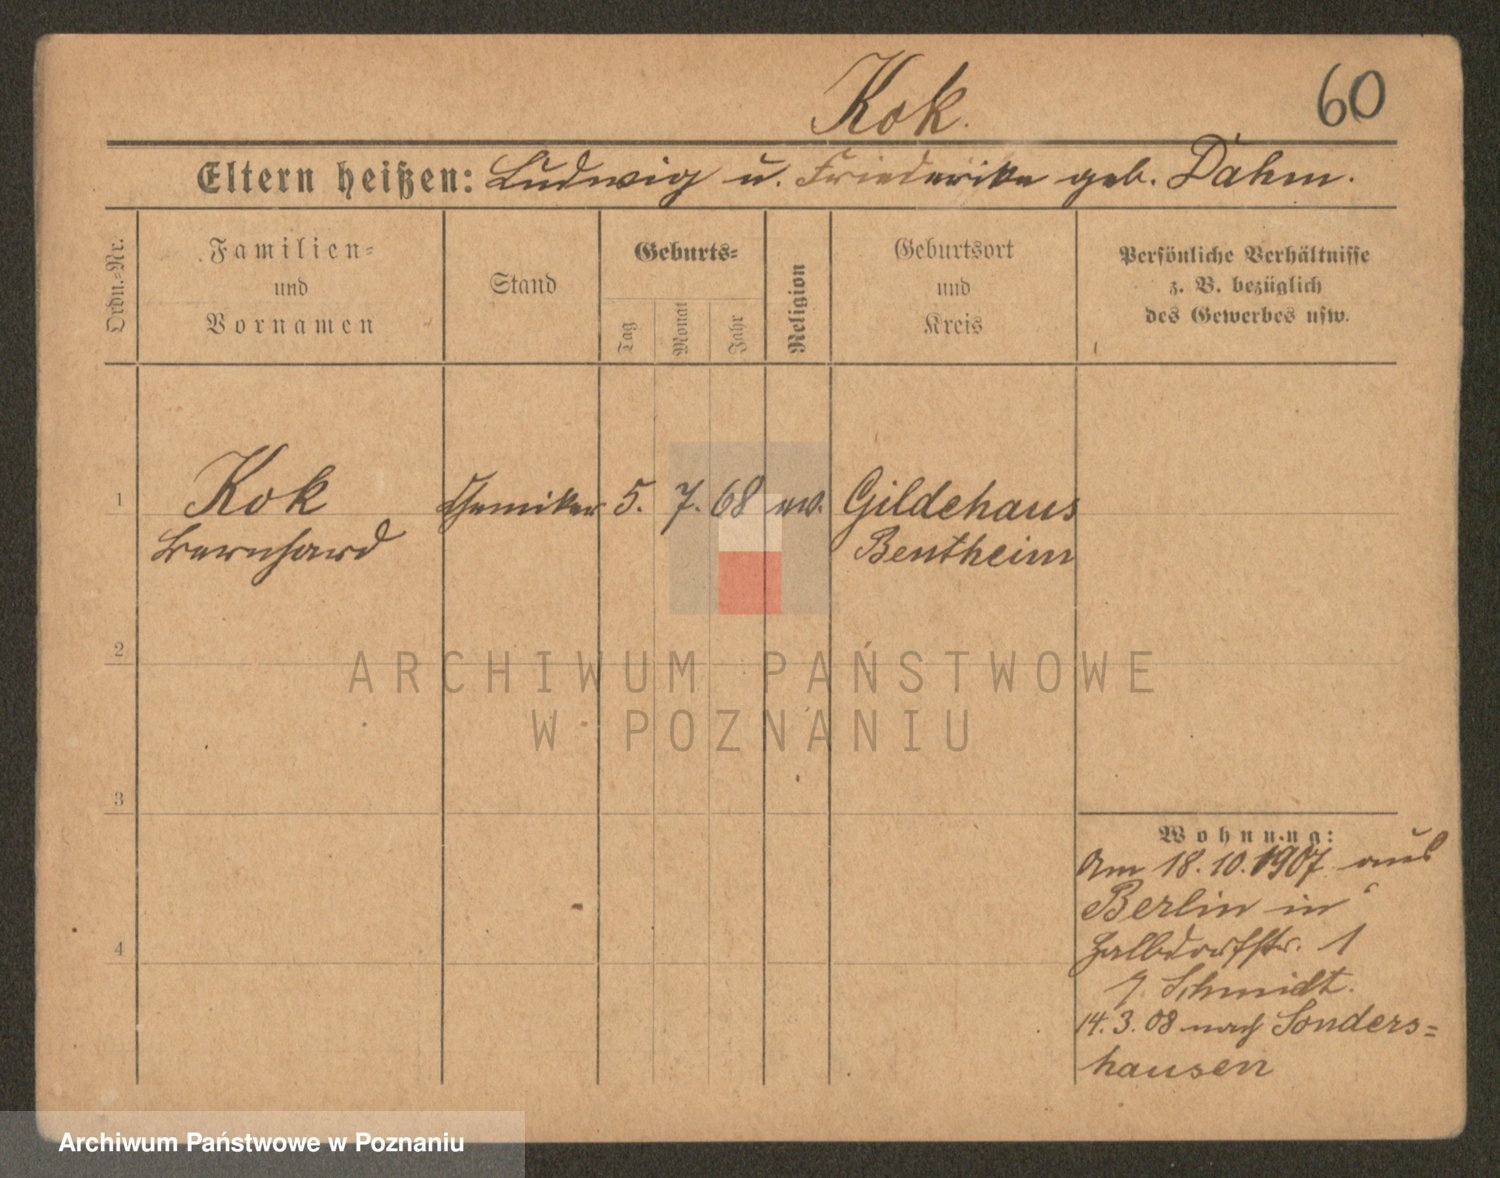 Kok.
60
Eltern heißen: Ludwig u. Friederike geb. Dahm.
Ordn.-Nr.
Familien-
und
Vornamen
Stand
Geburts-
Tag
Monat
Jahr
Religion
Geburtsort
und
Kreis
Persönliche Verhältnisse
z. B. bezüglich
des Gewerbes usw.
1 Kok Chemiker 5. 7. 68 ev. Gildehaus
Bernhard Bentheim
2
ARCHIWUM PAŃSTWOWE
W POZNANIU
3
Wohnung:
Am 18.10.1907 aus
Berlin in
4
Halbdorfstr. 1
Schmidt.
14.3.08 nach Sonders=
hausen
Archiwum Państwowe w Poznaniu